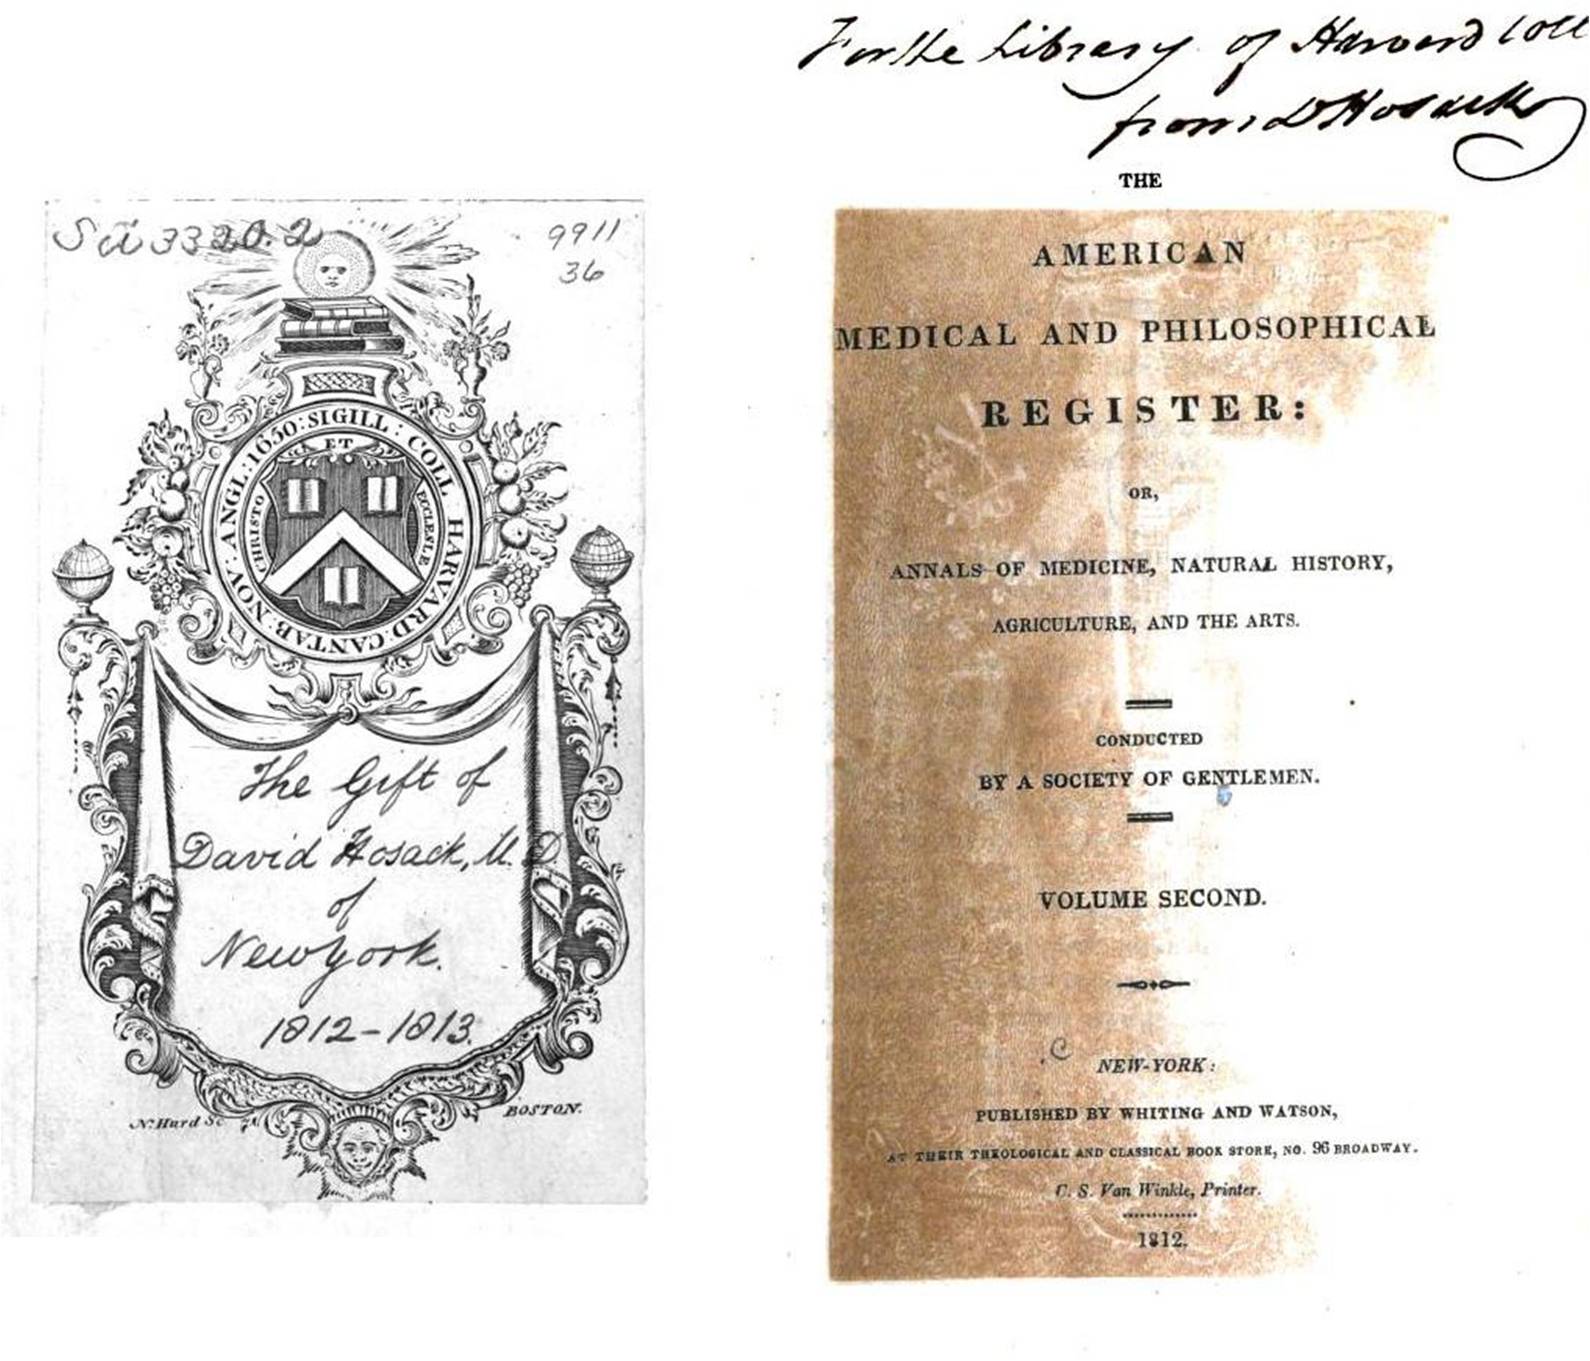 Sci 3320.2
9911
36
SIGILL : COLL HARVARD : CANTAB : NOV : ANGL : 1650 :
CHRISTO ET ECCLESIÆ
The Gift of
David Hosack, M.D.
of
New York.
1812-1813.
N. Hurd Sc
BOSTON.
For the Library of Harvard Coll
from D Hosack
THE
AMERICAN
MEDICAL AND PHILOSOPHICAL
REGISTER:
OR,
ANNALS OF MEDICINE, NATURAL HISTORY,
AGRICULTURE, AND THE ARTS.
CONDUCTED
BY A SOCIETY OF GENTLEMEN.
VOLUME SECOND.
C
NEW-YORK:
PUBLISHED BY WHITING AND WATSON,
AT THEIR THEOLOGICAL AND CLASSICAL BOOK STORE, NO. 96 BROADWAY.
C. S. Van Winkle, Printer.
1812.